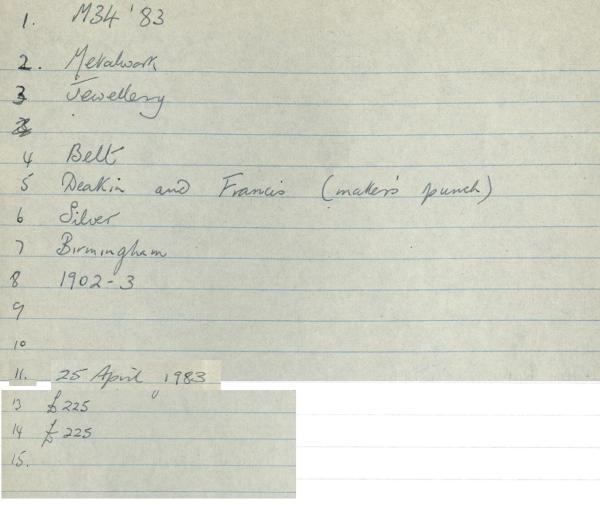 1. M34 '83
2. Metalwork
3 Jewellery
4 Belt
5 Deakin and Francis (maker's punch)
6 Silver
7 Birmingham
8 1902-3
9
10
11. 25 April 1983
13 £225
14 £225
15.